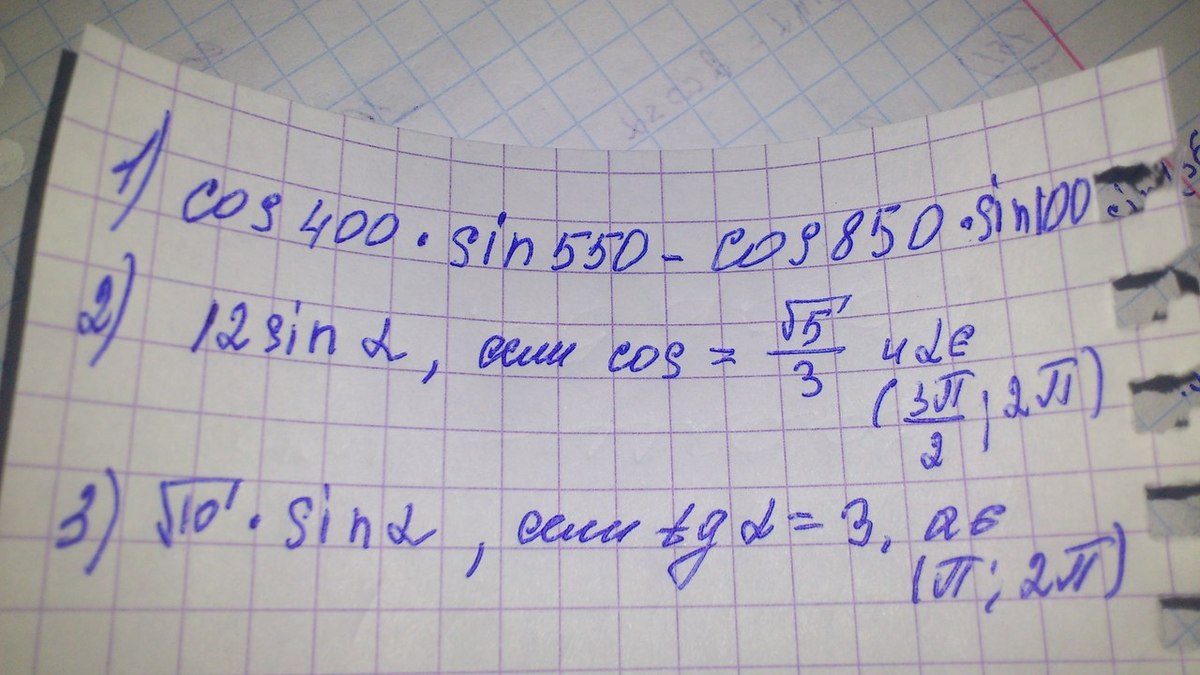 1) cos 400 · sin 550 - cos 850 · sin 100
2) 12 sin α, если cos = √5/3 и α ∈
(3π/2; 2π)
3) √10 · sin α, если tg α = 3, a ∈
(π; 2π)